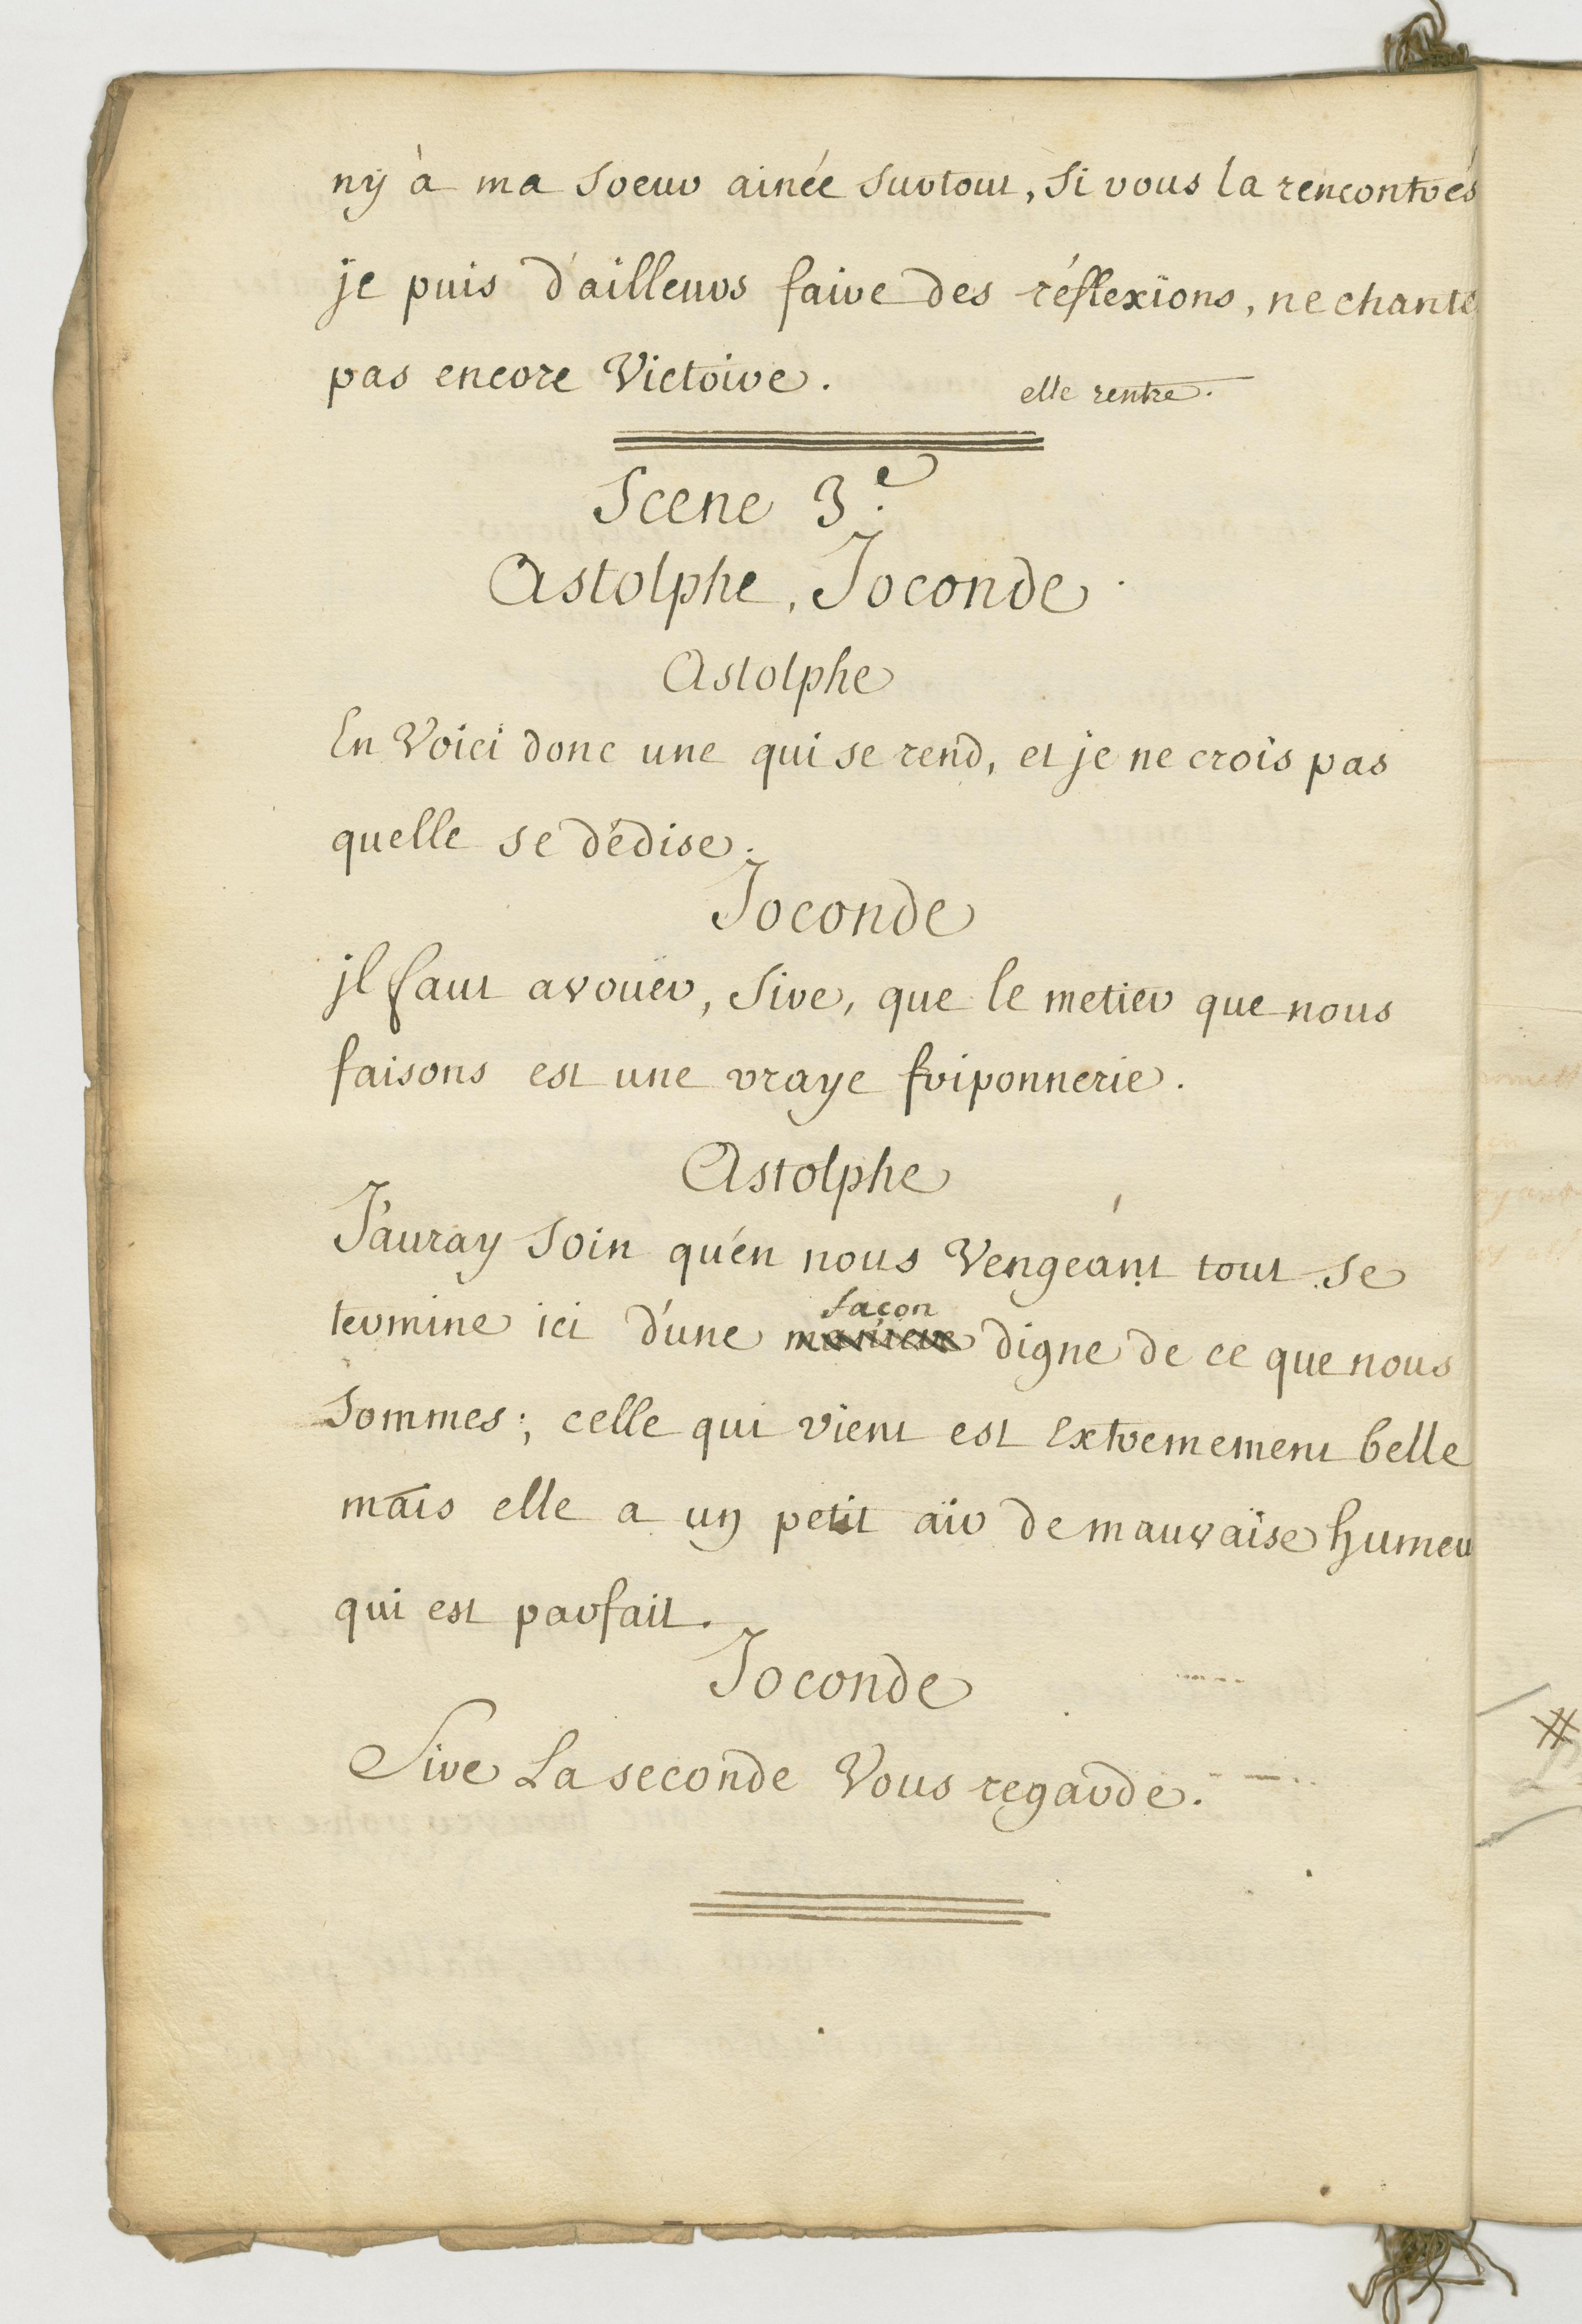 ny à ma soeur ainée surtout, si vous la rencontrés
je puis d'ailleurs faire des réflexïons, ne chanté
pas encore Victoire. elle rentre.
Scene 3.e
Astolphe, Joconde.
Astolphe
En Voici donc une qui se rend, et je ne crois pas
quelle se dédise.
Joconde
jl faut avoüer, Sire, que le metier que nous
faisons est une vraye friponnerie.
Astolphe
J'auray soin qu'en nous Vengeánt tout se
façon
termine ici d'une maniere digne de ce que nous
sommes; celle qui vient est Extremement belle
mais elle a un petit aïr de mauvaïse humeu
qui est parfait.
Joconde
Sire La seconde Vous regarde.
#